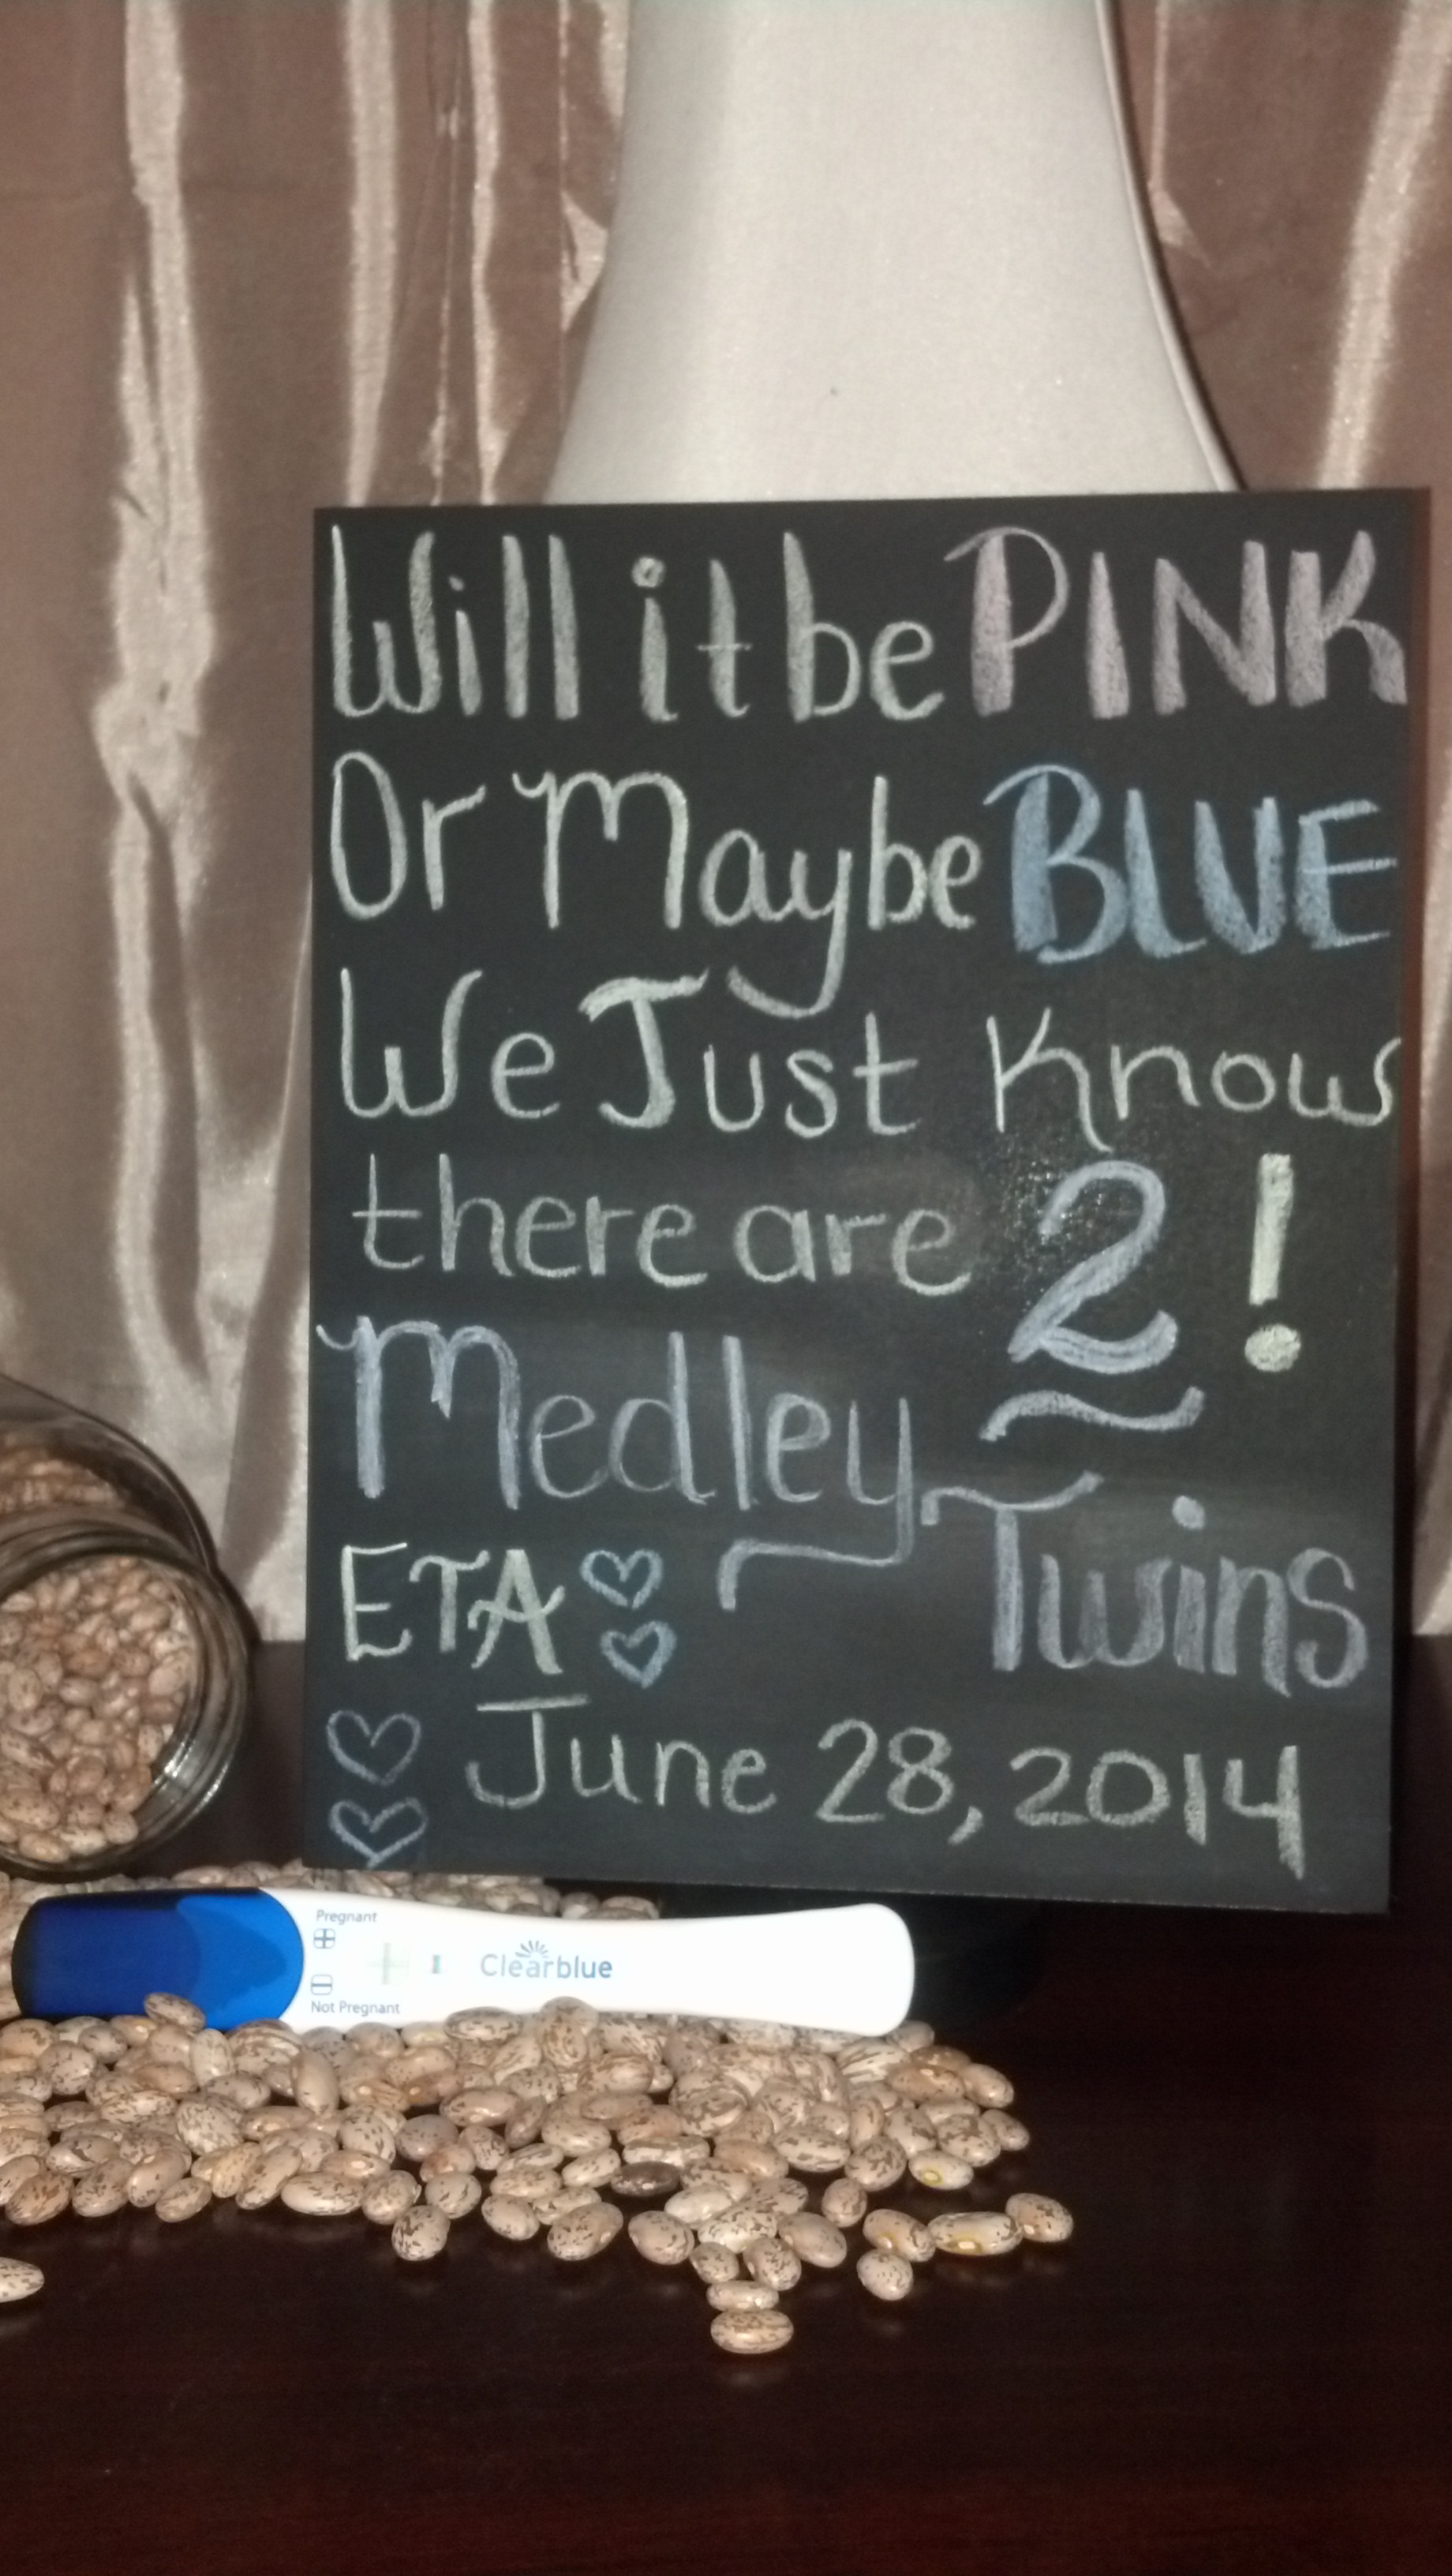 Will it be PINK
Or Maybe BLUE
We Just Know
there are 2!
Medley
Twins
ETA
June 28, 2014
Pregnant
Clearblue
Not Pregnant